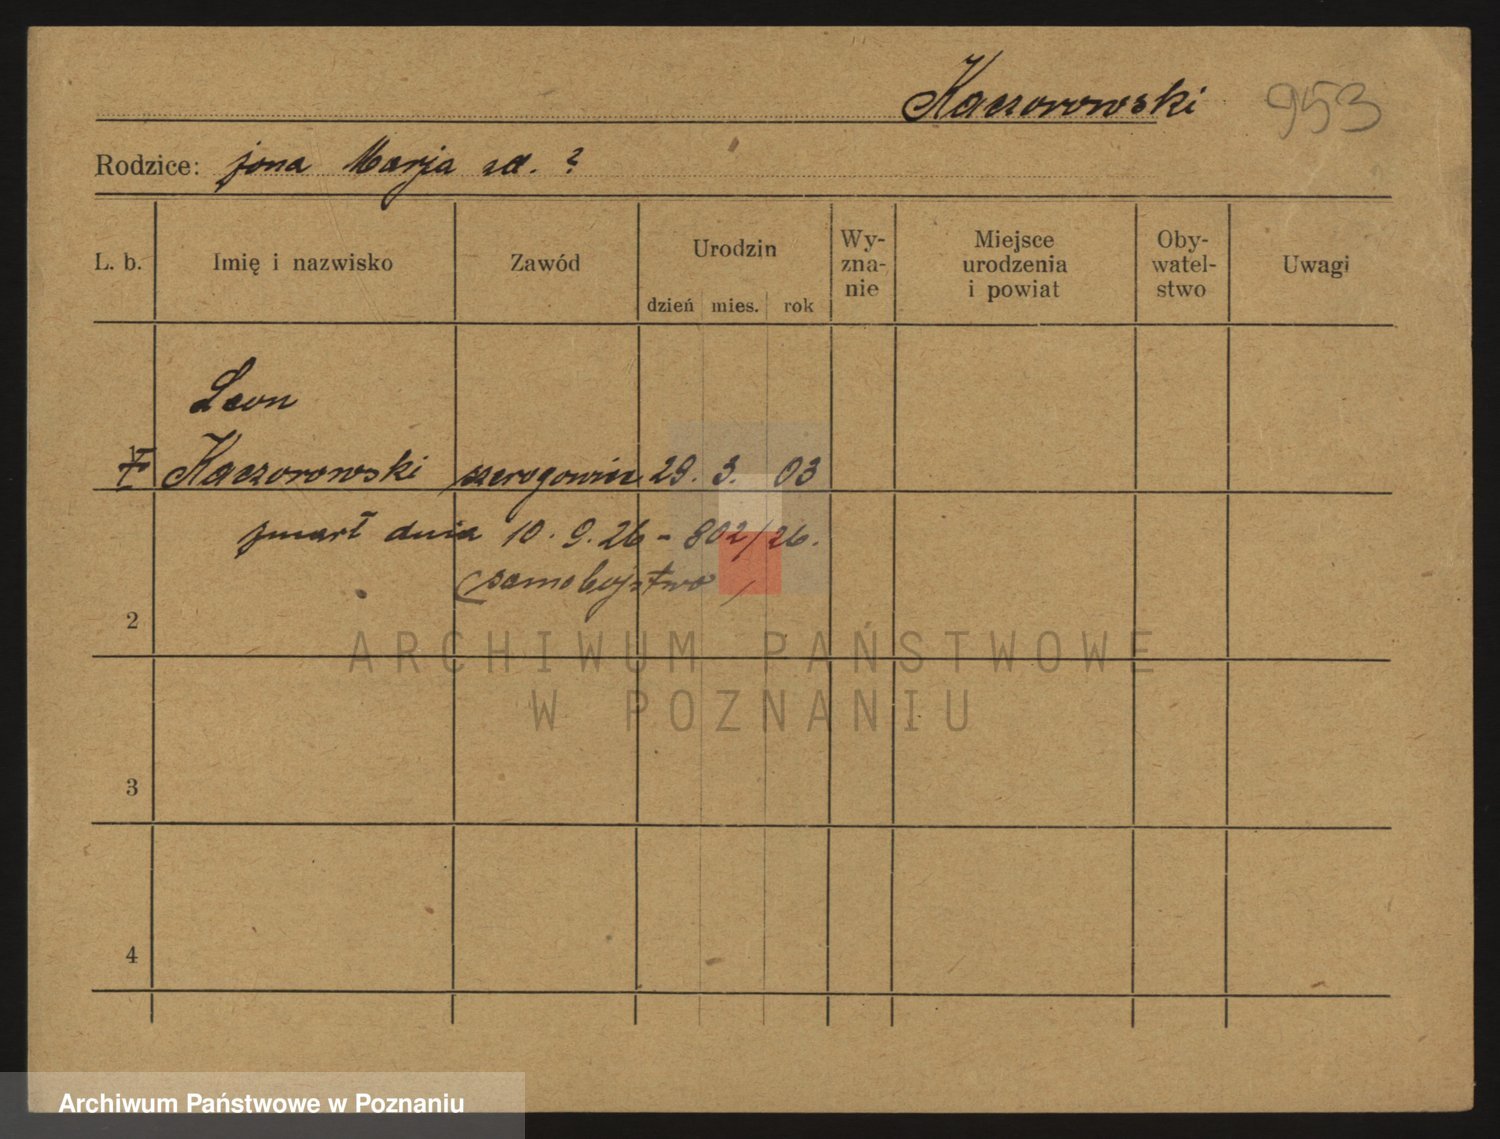 Kaczorowski 953
Rodzice: żona Marja zd. ?
L. b. Imię i nazwisko Zawód Urodzin dzień mies. rok Wy-zna-nie Miejsce urodzenia i powiat Oby-watel-stwo Uwagi
Leon
Kaczorowski szeregowiec 29. 3. 03
zmarł dnia 10. 9. 26 - 802/26.
(samobójstwo)
2
3
4
ARCHIWUM PAŃSTWOWE
W POZNANIU
Archiwum Państwowe w Poznaniu